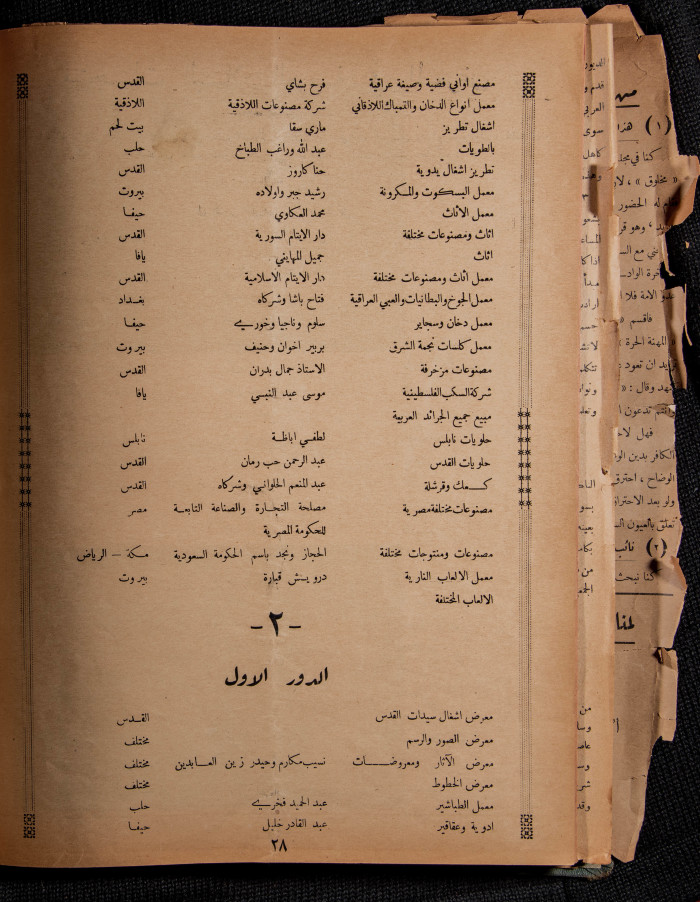 مصنع اواني فضية وصيغة عراقية فرح بشاي القدس
معمل انواع الدخان والتمباك اللاذقاني شركة مصنوعات اللاذقية اللاذقية
اشغال تطريز ماري سقا بيت لحم
بالطويات عبد الله وراغب الطباخ حلب
تطريز اشغال يدوية حنا كاروز القدس
معمل البسكوت والمسكرونة رشيد جبر واولاده بيروت
معمل الاثاث محمد العكاوي حيفا
اثاث ومصنوعات مختلفة دار الايتام السورية القدس
اثاث جميل المهايني يافا
معمل اثاث ومصنوعات مختلفة دار الايتام الاسلامية القدس
معمل الجوخ والبطانيات والعبي العراقية فتاح باشا وشركاه بغداد
معمل دخان وسجاير سلوم وناجيا وخوريه حيفا
معمل كلسات نجمة الشرق بربير اخوان وحنيف بيروت
مصنوعات مزخرفة الاستاذ جمال بدران القدس
شركة السكب الفلسطينية موسى عبد النبي يافا
مبيع جميع الجرائد العربية
حلويات نابلس لطفي اباظة نابلس
حلويات القدس عبد الرحمن حب رمان القدس
كعك وقرشلة عبد المنعم الحلواني وشركاه القدس
مصنوعات مختلفة مصرية مصلحة التجارة والصناعة التابعة مصر
للحكومة المصرية
مصنوعات ومنتوجات مختلفة الحجاز ونجد باسم الحكومة السعودية مكة – الرياض
معمل الالعاب النارية درويش قبارة بيروت
الالعاب المختلفة
– ٢ –
الدور الاول
معرض اشغال سيدات القدس القدس
معرض الصور والرسم مختلف
معرض الآثار ومعروضات نسيب مكارم وحيدر زين العابدين مختلف
معرض الخطوط مختلف
معمل الطباشير عبد الحميد فخري حلب
ادوية وعقاقير عبد القادر خليل حيفا
٢٨